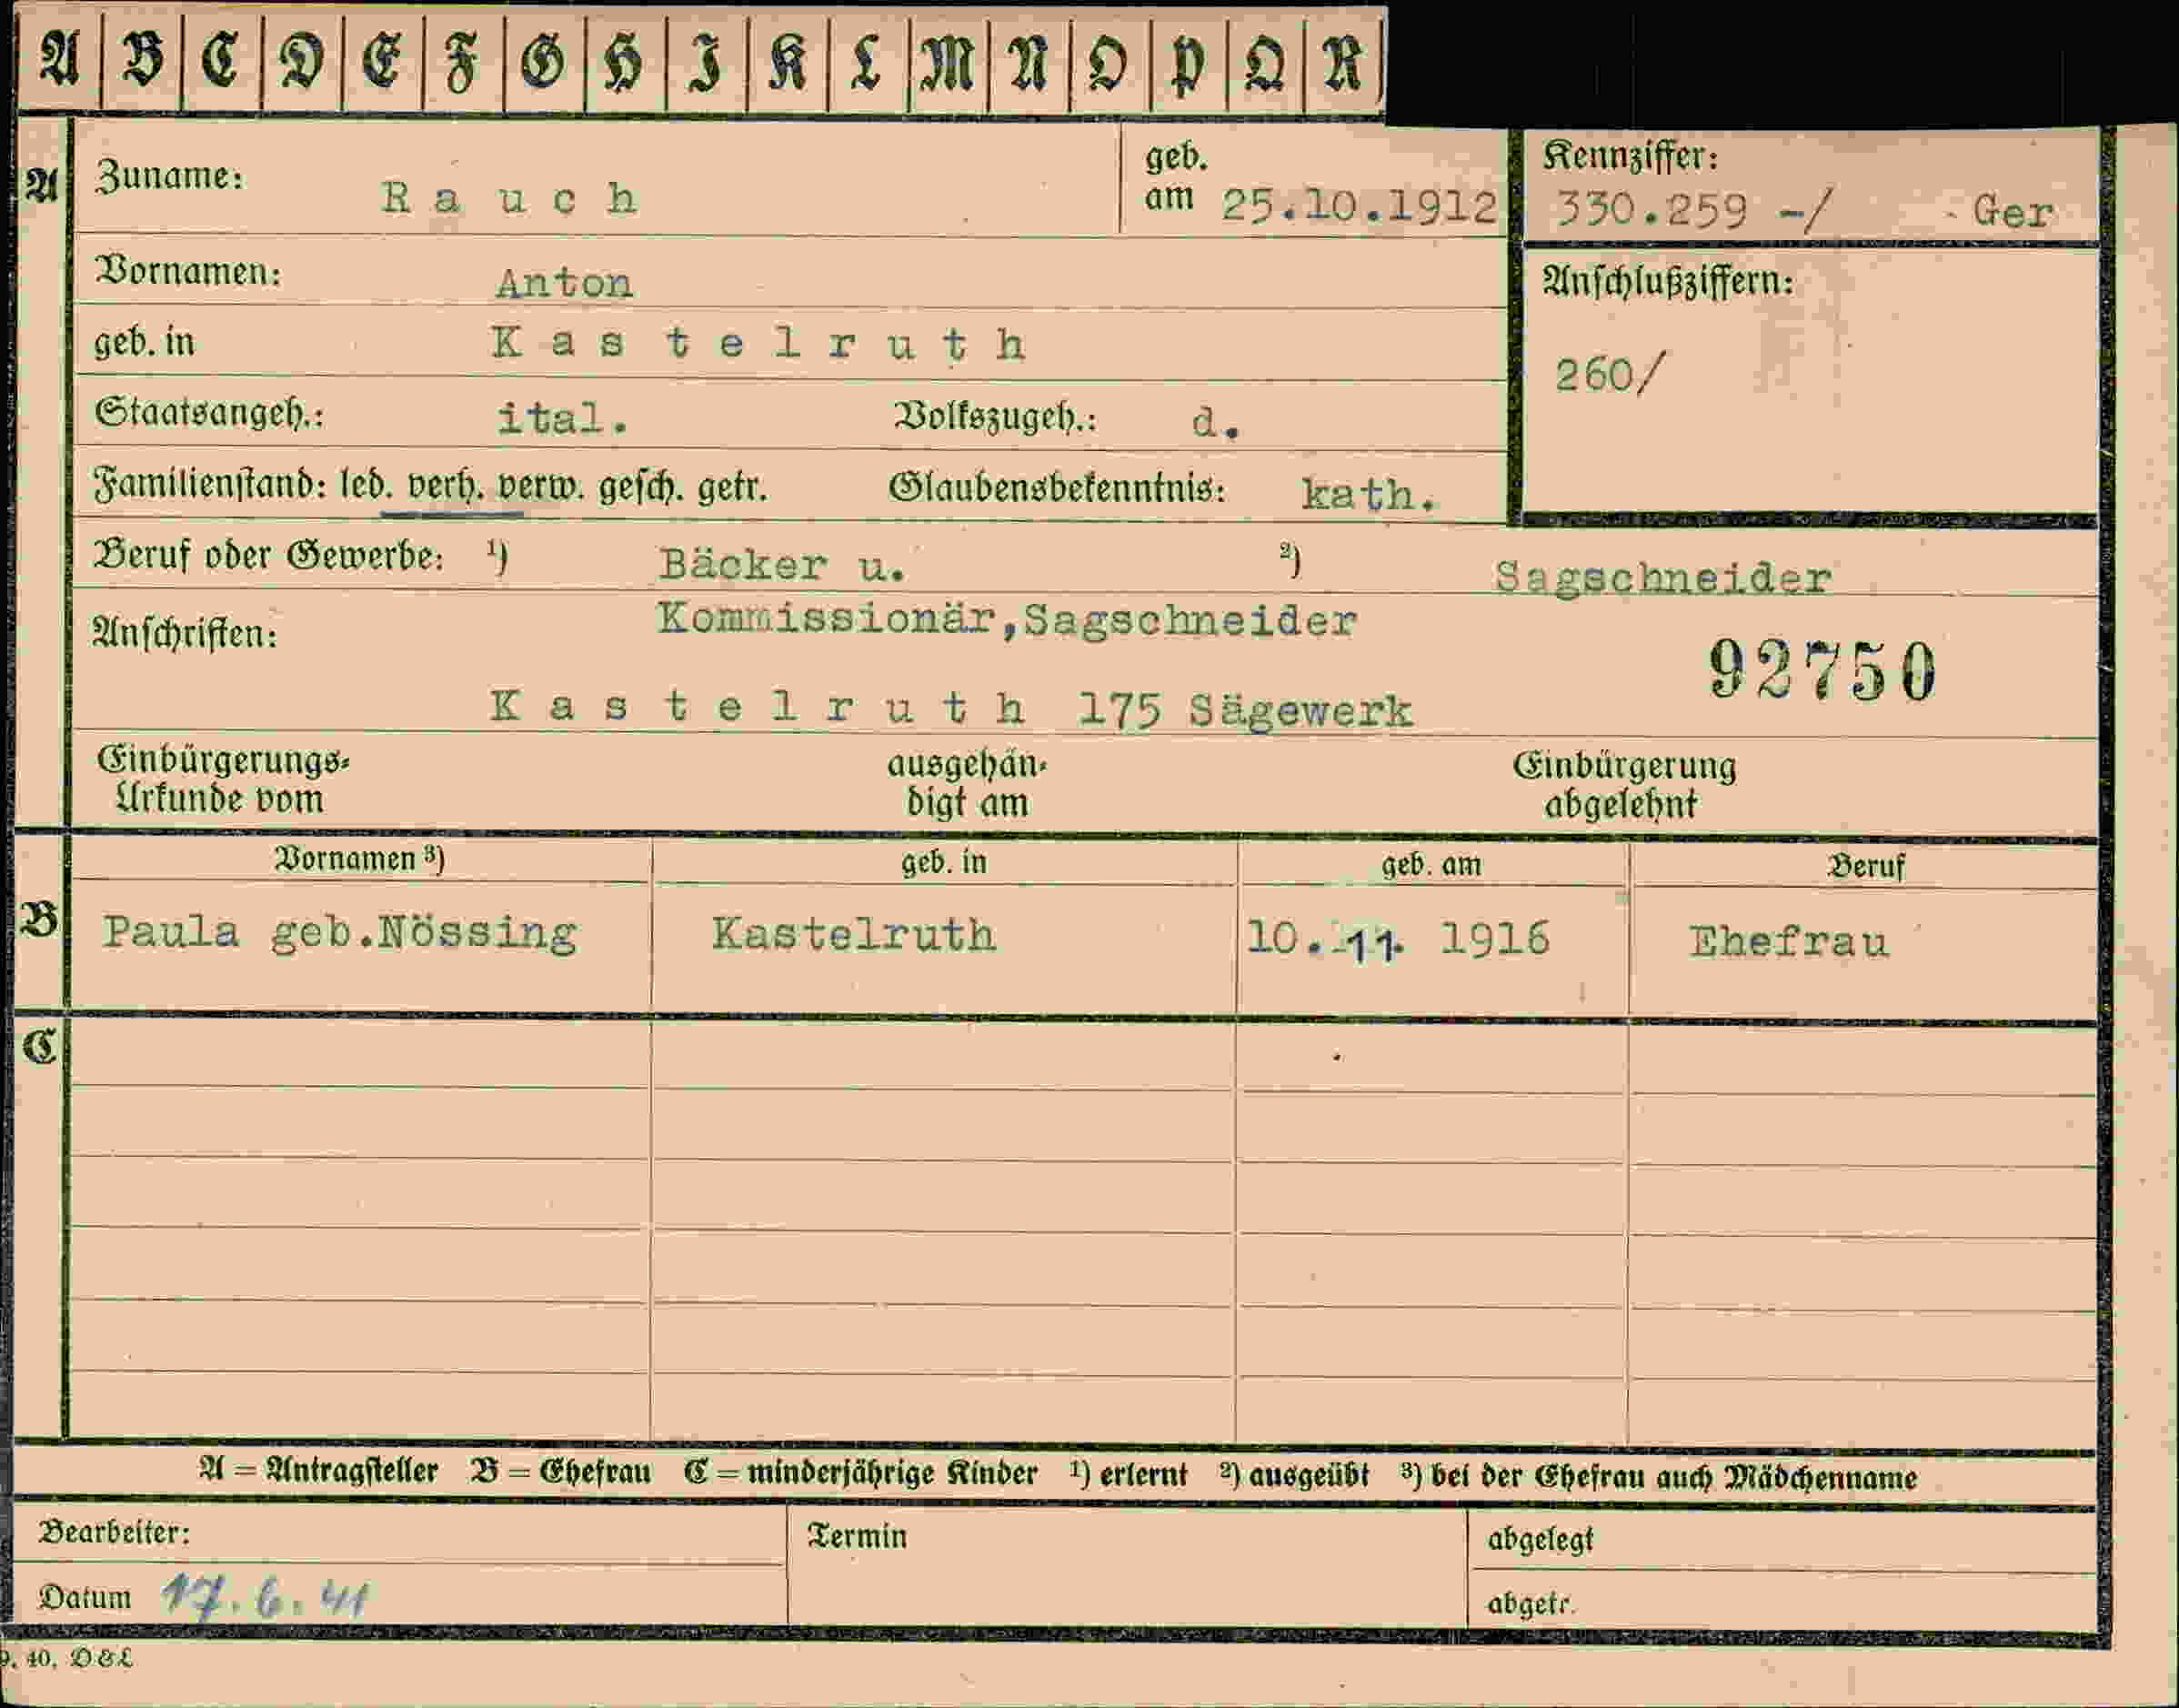 A B C D E F G H I K L M N O P Q R
A Zuname: Rauch geb. am 25.10.1912 Kennziffer: 330.259 -/ Ger
Vornamen: Anton Anschlußziffern:
geb. in Kastelruth 260/
Staatsangeh.: ital. Volkszugeh.: d.
Familienstand: led. verh. verw. gesch. getr. Glaubensbekenntnis: kath.
Beruf oder Gewerbe: 1) Bäcker u. 2) Sagschneider
Anschriften: Kommissionär,Sagschneider
92750
Kastelruth 175 Sägewerk
Einbürgerungs- ausgehän- Einbürgerung
Urkunde vom digt am abgelehnt
Vornamen 3) geb. in geb. am Beruf
B Paula geb.Nössing Kastelruth 10. 11. 1916 Ehefrau
C
A = Antragsteller B = Ehefrau C = minderjährige Kinder 1) erlernt 2) ausgeübt 3) bei der Ehefrau auch Mädchenname
Bearbeiter: Termin abgelegt
Datum 17. 6. 41 abgetr.
9. 40. D & L